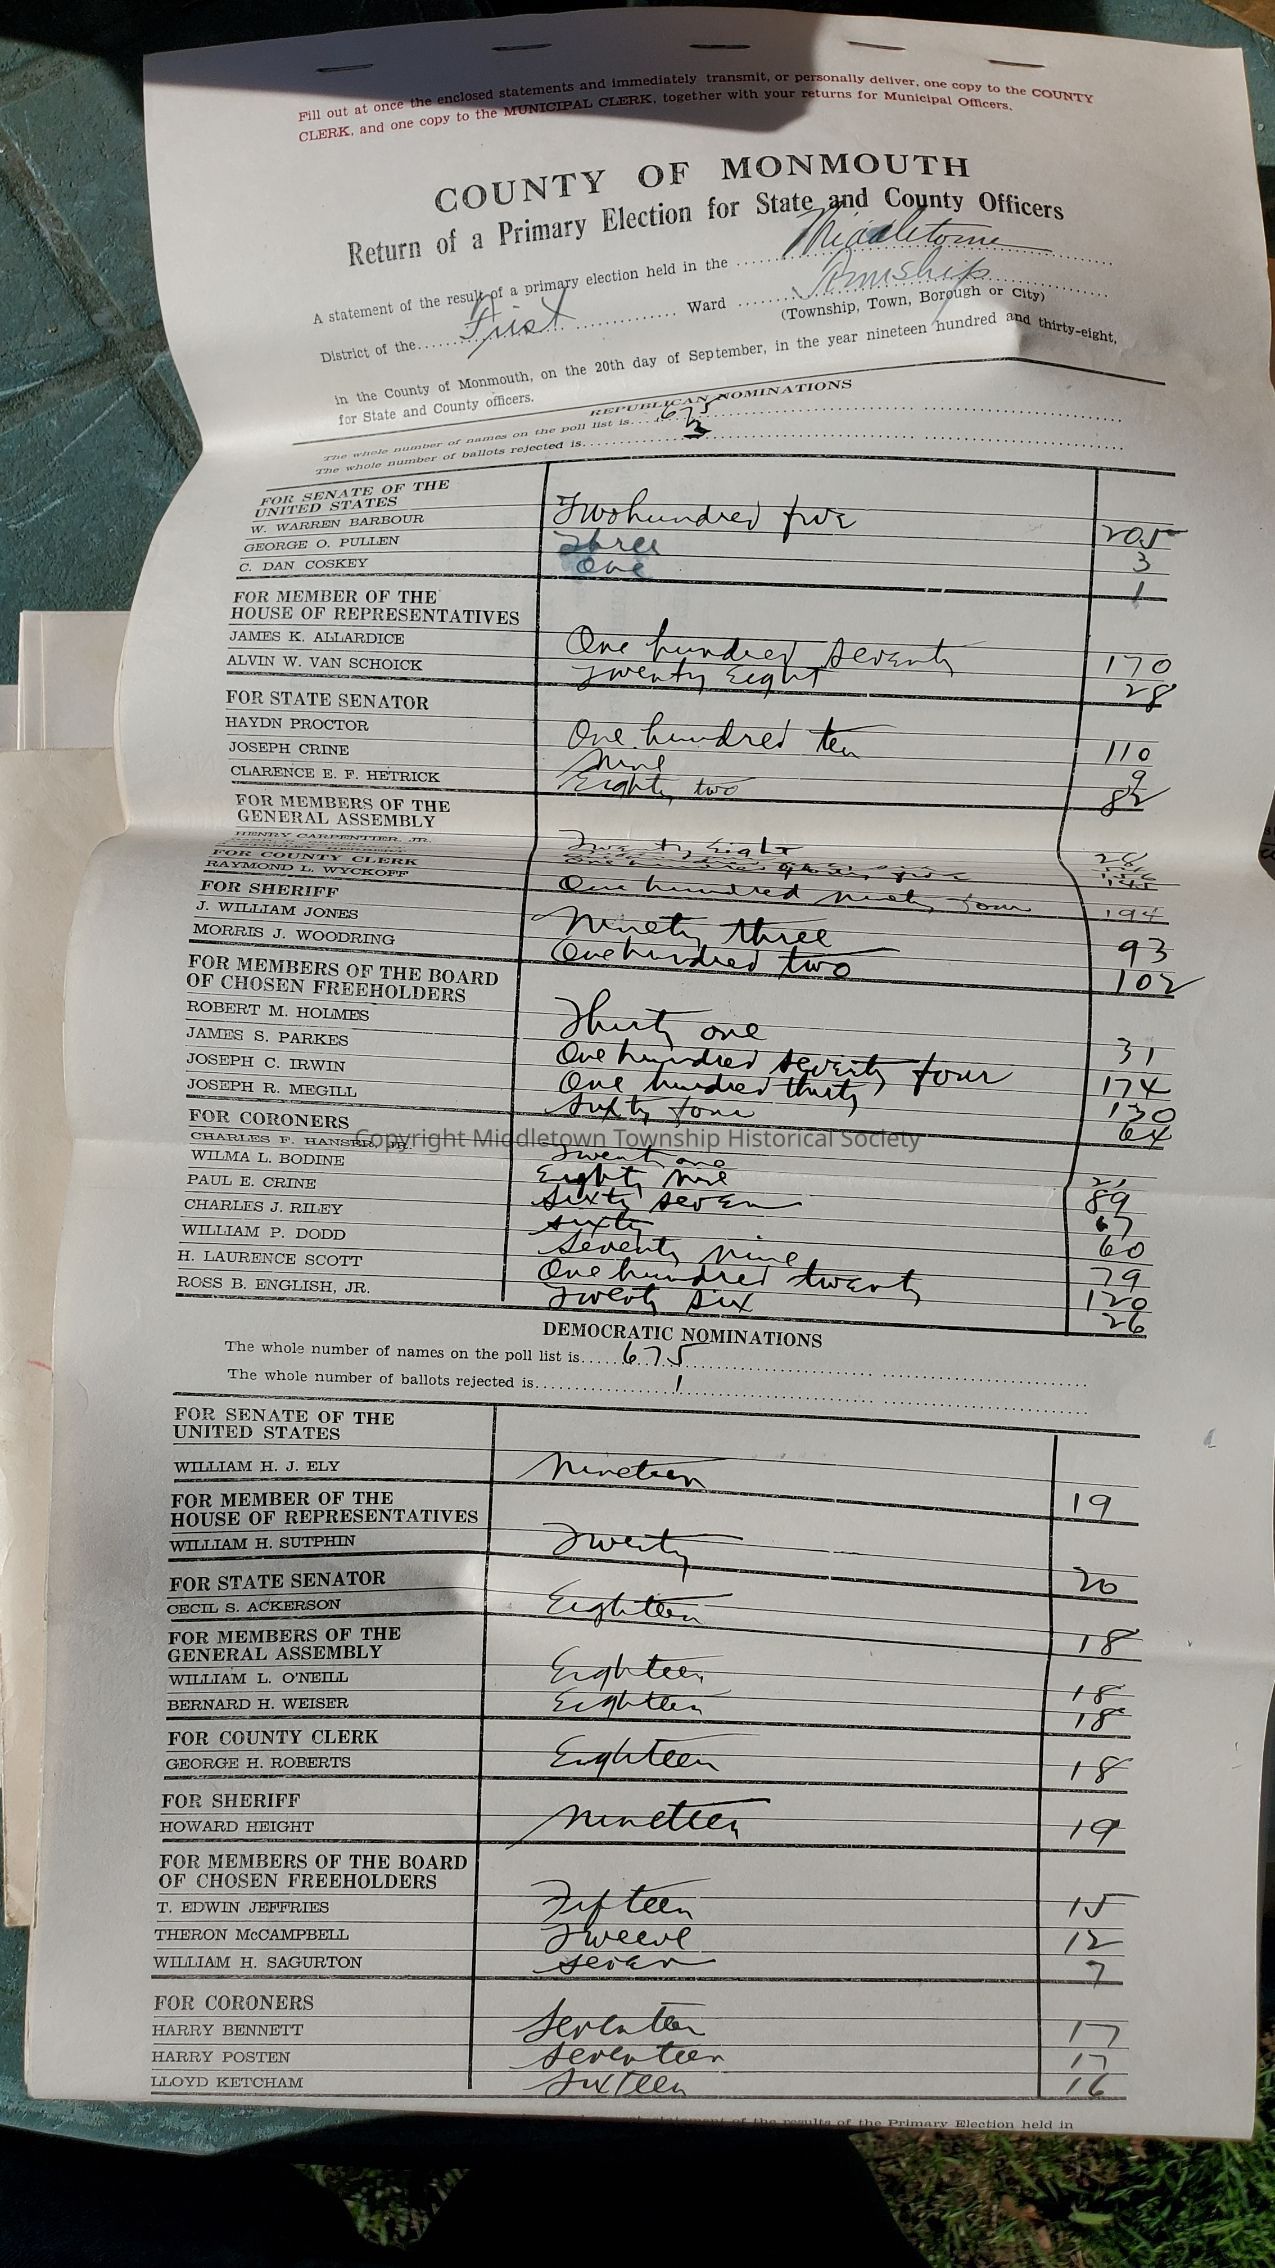 Fill out at once the enclosed statements and immediately transmit, or personally deliver, one copy to the COUNTY
CLERK, and one copy to the MUNICIPAL CLERK, together with your returns for Municipal Officers.
COUNTY OF MONMOUTH
Return of a Primary Election for State and County Officers
A statement of the result of a primary election held in the Middletown
District of the First Ward Township
(Township, Town, Borough or City)
in the County of Monmouth, on the 20th day of September, in the year nineteen hundred and thirty-eight,
for State and County officers.
REPUBLICAN NOMINATIONS
The whole number of names on the poll list is 675
The whole number of ballots rejected is
FOR SENATE OF THE
UNITED STATES
W. WARREN BARBOUR Two hundred five 205
GEORGE O. PULLEN Three 3
C. DAN COSKEY One 1
FOR MEMBER OF THE
HOUSE OF REPRESENTATIVES
JAMES K. ALLARDICE One hundred seventy 170
ALVIN W. VAN SCHOICK Twenty Eight 28
FOR STATE SENATOR
HAYDN PROCTOR One hundred ten 110
JOSEPH CRINE Nine 9
CLARENCE E. F. HETRICK Eighty two 82
FOR MEMBERS OF THE
GENERAL ASSEMBLY
HENRY CARPENTIER, JR. Twenty Eight 28
FOR COUNTY CLERK
RAYMOND L. WYCKOFF One hundred ninety four 194
FOR SHERIFF
J. WILLIAM JONES Ninety three 93
MORRIS J. WOODRING One hundred two 102
FOR MEMBERS OF THE BOARD
OF CHOSEN FREEHOLDERS
ROBERT M. HOLMES Thirty one 31
JAMES S. PARKES One hundred seventy four 174
JOSEPH C. IRWIN One hundred thirty 130
JOSEPH R. MEGILL Sixty four 64
FOR CORONERS
Copyright Middletown Township Historical Society
CHARLES F. HANSER, JR. Twenty one 21
WILMA L. BODINE Eighty nine 89
PAUL E. CRINE Sixty seven 67
CHARLES J. RILEY Sixty 60
WILLIAM P. DODD Seventy nine 79
H. LAURENCE SCOTT One hundred twenty 120
ROSS B. ENGLISH, JR. Twenty six 26
DEMOCRATIC NOMINATIONS
The whole number of names on the poll list is 675
The whole number of ballots rejected is 1
FOR SENATE OF THE
UNITED STATES
WILLIAM H. J. ELY Nineteen 19
FOR MEMBER OF THE
HOUSE OF REPRESENTATIVES
WILLIAM H. SUTPHIN Twenty 20
FOR STATE SENATOR
CECIL S. ACKERSON Eighteen 18
FOR MEMBERS OF THE
GENERAL ASSEMBLY
WILLIAM L. O'NEILL Eighteen 18
BERNARD H. WEISER Eighteen 18
FOR COUNTY CLERK
GEORGE H. ROBERTS Eighteen 18
FOR SHERIFF
HOWARD HEIGHT Nineteen 19
FOR MEMBERS OF THE BOARD
OF CHOSEN FREEHOLDERS
T. EDWIN JEFFRIES Fifteen 15
THERON McCAMPBELL Tweeve 12
WILLIAM H. SAGURTON Seven 7
FOR CORONERS
HARRY BENNETT Seventeen 17
HARRY POSTEN Seventeen 17
LLOYD KETCHAM Sixteen 16
statement of the results of the Primary Election held in